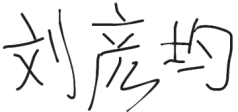 刘彦均